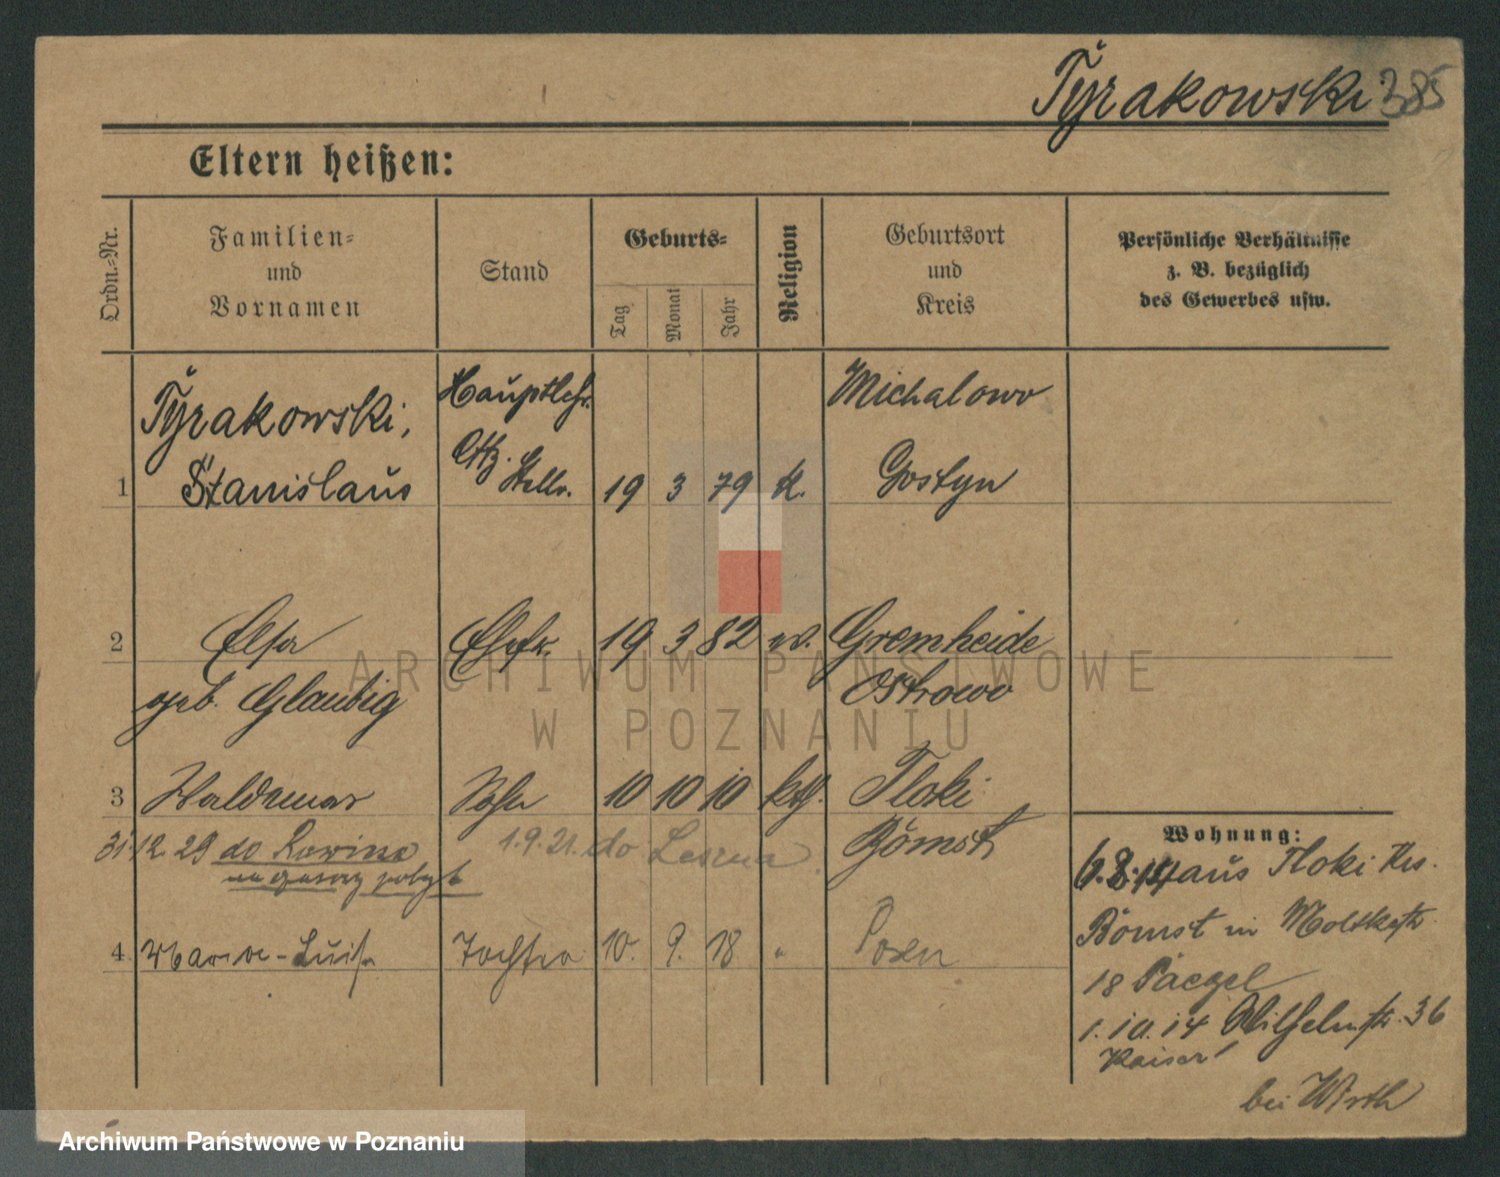 Tyrakowski 385
Eltern heißen:
Ordn.-Nr.
Familien-
und
Vornamen
Stand
Geburts-
Tag
Monat
Jahr
Religion
Geburtsort
und
Kreis
Persönliche Verhältnisse
z. B. bezüglich
des Gewerbes usw.
1 Tyrakowski, Stanislaus Hauptlehr. Stellv. 19 3 79 k. Michalowo Gostyn
2 Elsa Ehefr. 19 3 82 w. Gremheide
geb. Glaubig Ostrowo
3 Waldemar Sohn 10 10 10 kth. Tloki
31.12.29 do 1.9.21. do Leszna Bomst
Wohnung:
6.8.14 aus Tloki Krs.
Bomst in Moltkestr.
18 Paegel
1.10.14 Wilhelmstr. 36
Kaiser
bei Wirth
4 Marie-Luise Tochter 10. 9. 18 " Posen
ARCHIWUM PAŃSTWOWE
W POZNANIU
Archiwum Państwowe w Poznaniu